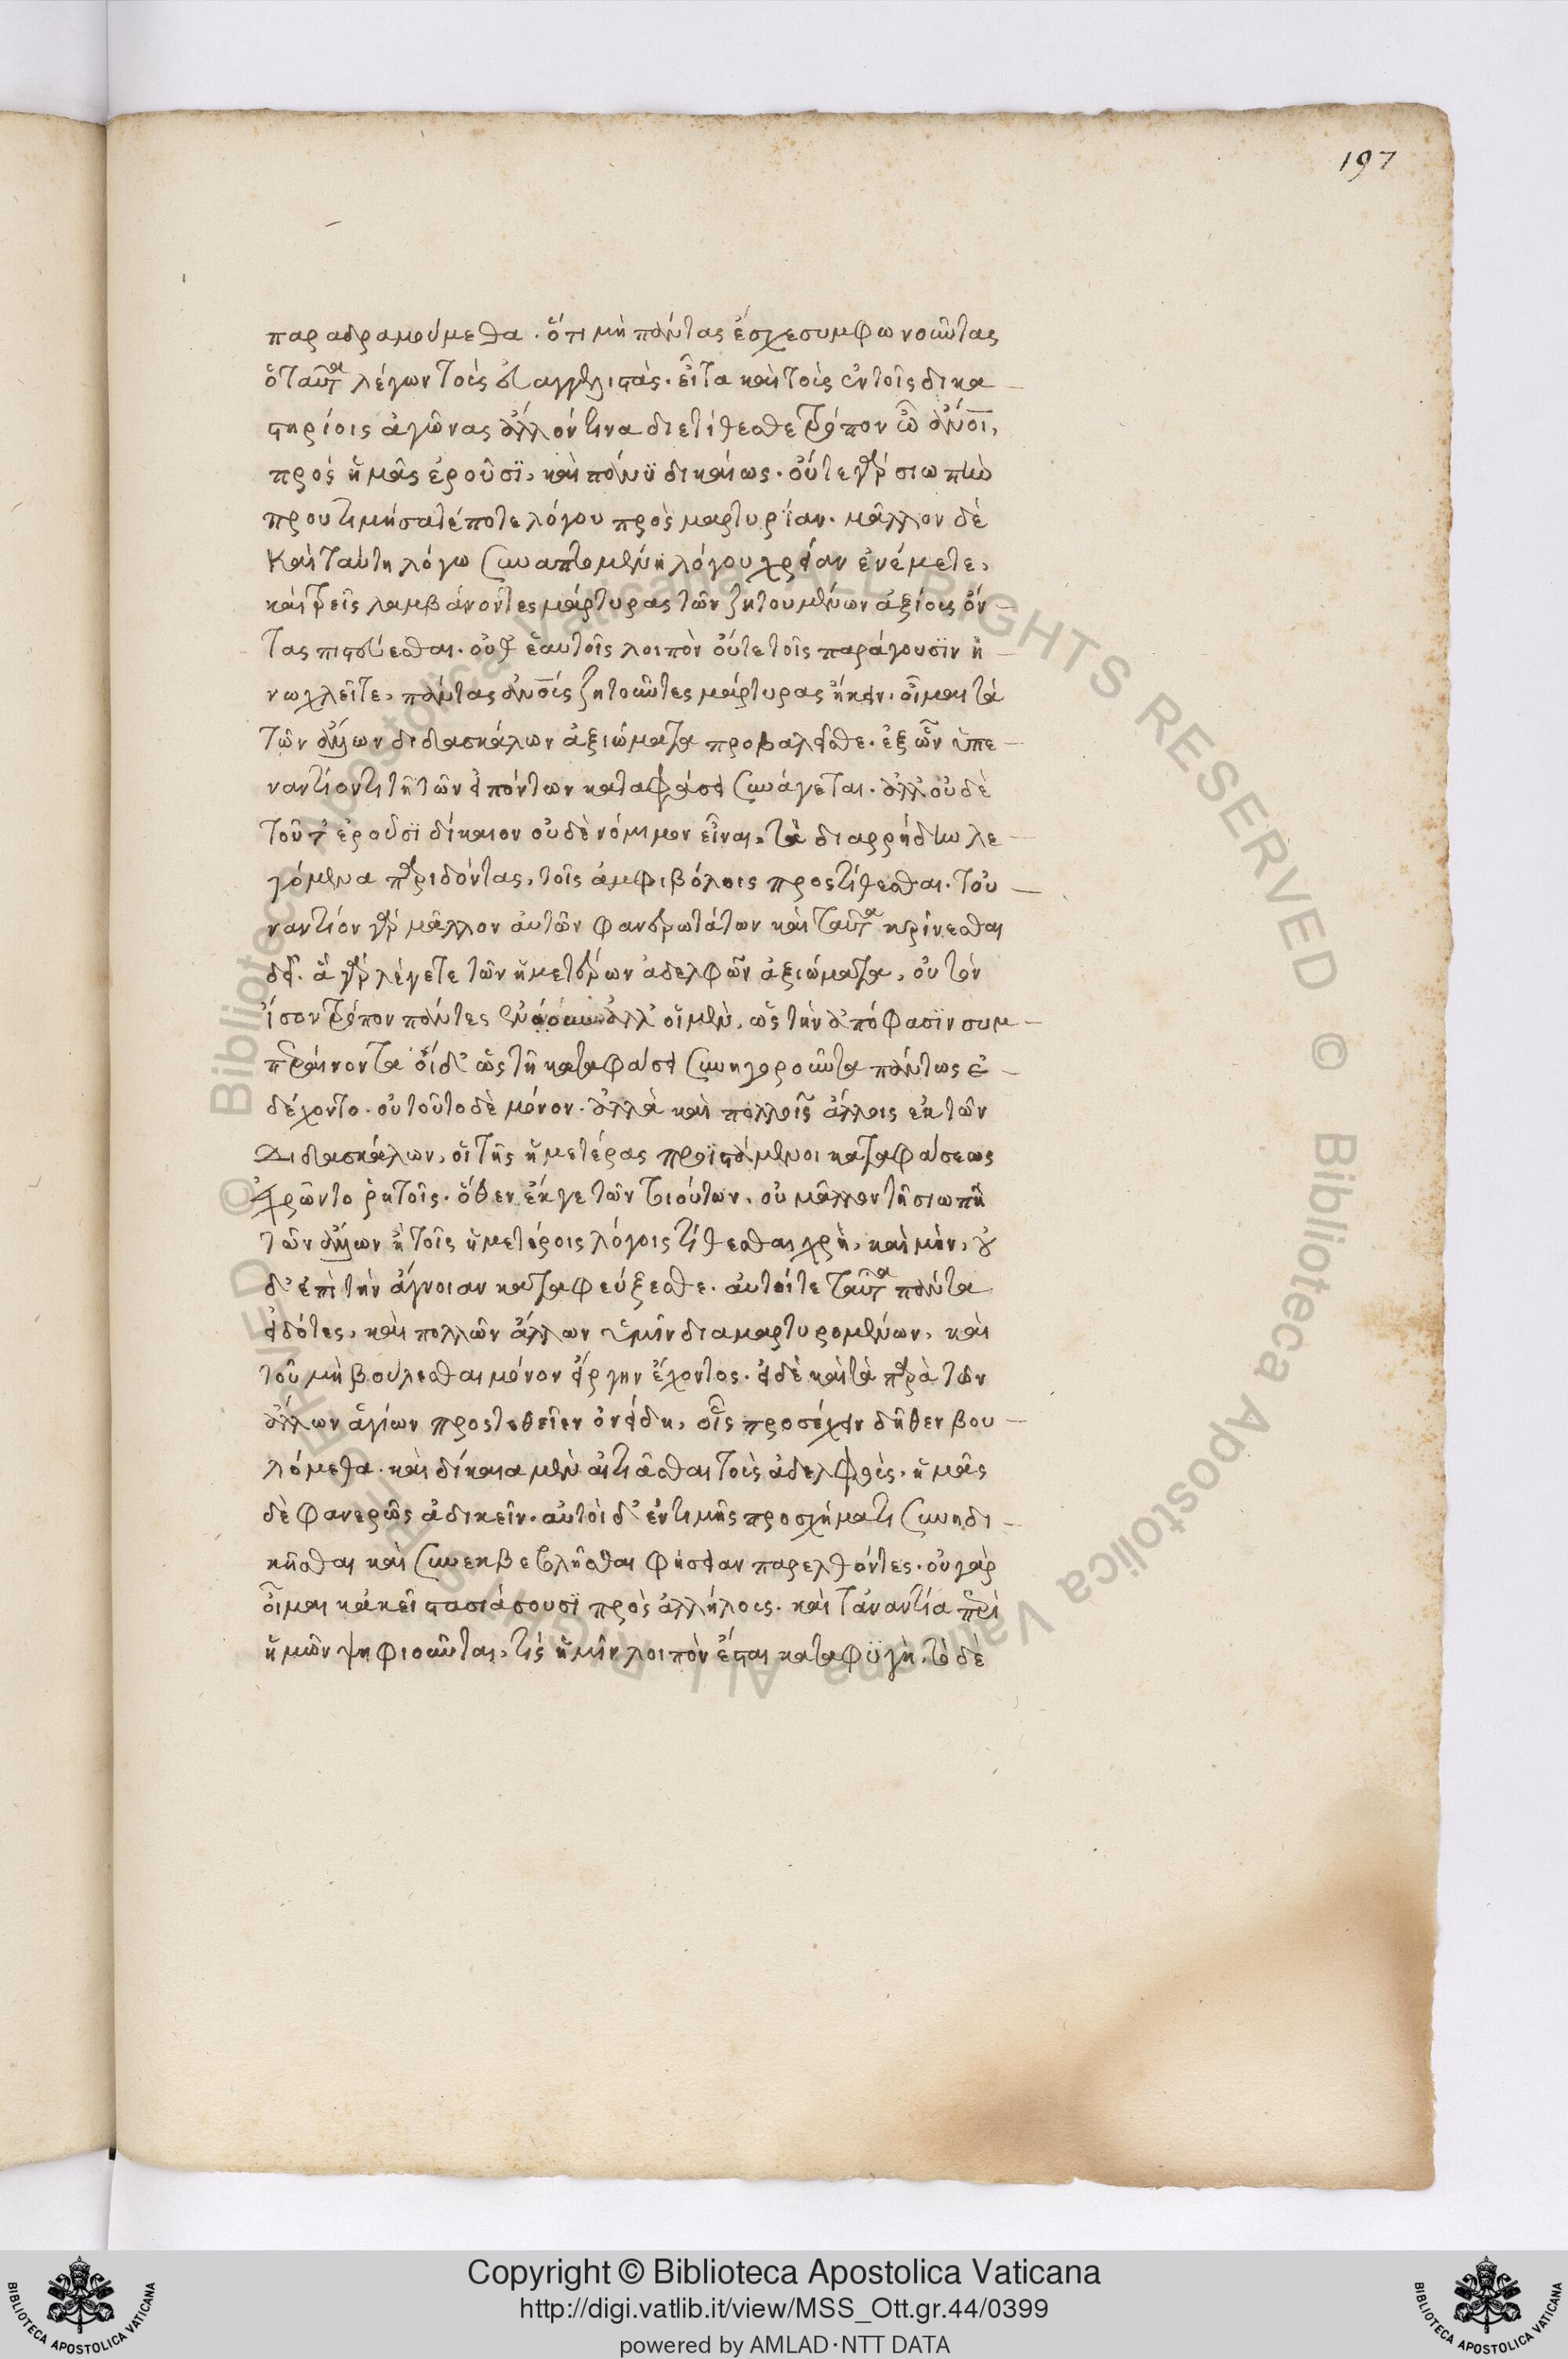 197
παραδραμούμεθα. ὅτι μὴ πάντας ἔσχε συμφωνοῦντας
ὁ ταῦτα λέγων τοὺς εὐαγγελιστάς. εἶτα καὶ τοὺς ἐν τοῖς δικα
στηρίοις ἀγῶνας ἄλλον τινα διετίθεσθε τρόπον ὦ ἄνοι,
πρὸς ἡμᾶς ἐροῦσϊ, καὶ πάνϋ δικαίως. οὔτε γὰρ σιωπὴν
προυτιμήσατέ ποτε λόγου πρὸς μαρτυρίαν. μᾶλλον δὲ
καὶ ταύτη λόγω συναπτομένη λόγου χρείαν ἐνέμετε,
καὶ τρεῖς λαμβάνοντες μάρτυρας τῶν ζητουμένων ἀξίους ὄν
τας πιστεύεσθαι. οὐθ ἑαυτοῖς λοιπὸν οὔτε τοῖς παράγουσϊν ἠ
νωχλεῖτε, πάντας ἀνοὺς ζητοῦντες μάρτυρας ἥκειν. οἶμαι τὰ
τῶν ἄλλων διδασκάλων ἀξιώματα προβαλεῖσθε. ἐξ ὧν ὑπε
ναντίον τι τῆ τῶν εἰπόντων καταφάσει συνάγεται. ἀλλ' οὐδὲ
τοῦτ' ἐροῦσϊ δίκαιον οὐδὲ νόμιμον εἶναι, τὰ διαρρήδην λε
γόμενα παριδόντας, τοῖς ἀμφιβόλοις προστίθεσθαι. του
ναντίον γὰρ μᾶλλον ἀυτῶν φανερωτάτων καὶ ταῦτα κρίνεσθαι
δεῖ. ἃ γὰρ λέγετε τῶν ἡμετέρων ἀδελφῶν ἀξιώματα, οὐ τὸν
ἴσον τρόπον πάντες ἀλλ' οἱ μὲν, ὡς τὴν ἀπόφασϊν συμ
περαίνοντα οἱ δ' ὡς τῆ καταφάσει συνηγοροῦντα πάντως ἐ
δέχοντο. οὐ τοῦτο δὲ μόνον. ἀλλὰ καὶ πολλοῖς ἄλλοις ἐκ τῶν
Διδασκάλων, οἱ τῆς ἡμετέρας προϊστάμενοι καταφάσεως
ἐχρῶντο ῥητοῖς. ὅθεν ἔκ γε τῶν τοιούτων, οὐ μᾶλλον τῆ σιωπῆ
τῶν ἄλλων ἢ τοῖς ἡμετέροις λόγοις τίθεσθαι χρὴ, καὶ μὴν, οὐ
δ' ἐπὶ τὴν ἄγνοιαν καταφεύξεσθε. ἀυτοί τε ταῦτα πάντα
εἰδότες, καὶ πολλῶν ἄλλων ὑμῖν διαμαρτυρομένων, καὶ
τοῦ μὴ βούλεσθαι μόνον εἴργην ἔχοντος. εἰ δὲ καὶ τὰ παρὰ τῶν
ἄλλων ἁγίων προστεθεῖεν ὀνείδη, οἷς προσέχειν δῆθεν βου
λόμεθα. καὶ δίκαια μὲν αἰτιᾶσθαι τοὺς ἀδελφοὺς. ἡμᾶς
δὲ φανερῶς ἀδικεῖν. αὐτοὶ δ' ἐν τιμῆς προσχήματι συνηδι
κῆσθαι καὶ συνεκβεβλῆσθαι φήσειαν παρελθόντες. οὐ γὰρ
οἶμαι κἀκεῖ στασιάσουσϊ πρὸς ἀλλήλους. καὶ τἀναντία περὶ
ἡμῶν ψηφιοῦνται, τίς ἡμῖν λοιπὸν ἔσται καταφϋγὴ. τὸ δὲ
© Biblioteca Apostolica Vaticana ALL RIGHTS RESERVED
Copyright © Biblioteca Apostolica Vaticana
http://digi.vatlib.it/view/MSS_Ott.gr.44/0399
powered by AMLAD·NTT DATA
BIBLIOTECA APOSTOLICA VATICANA
BIBLIOTECA APOSTOLICA VATICANA